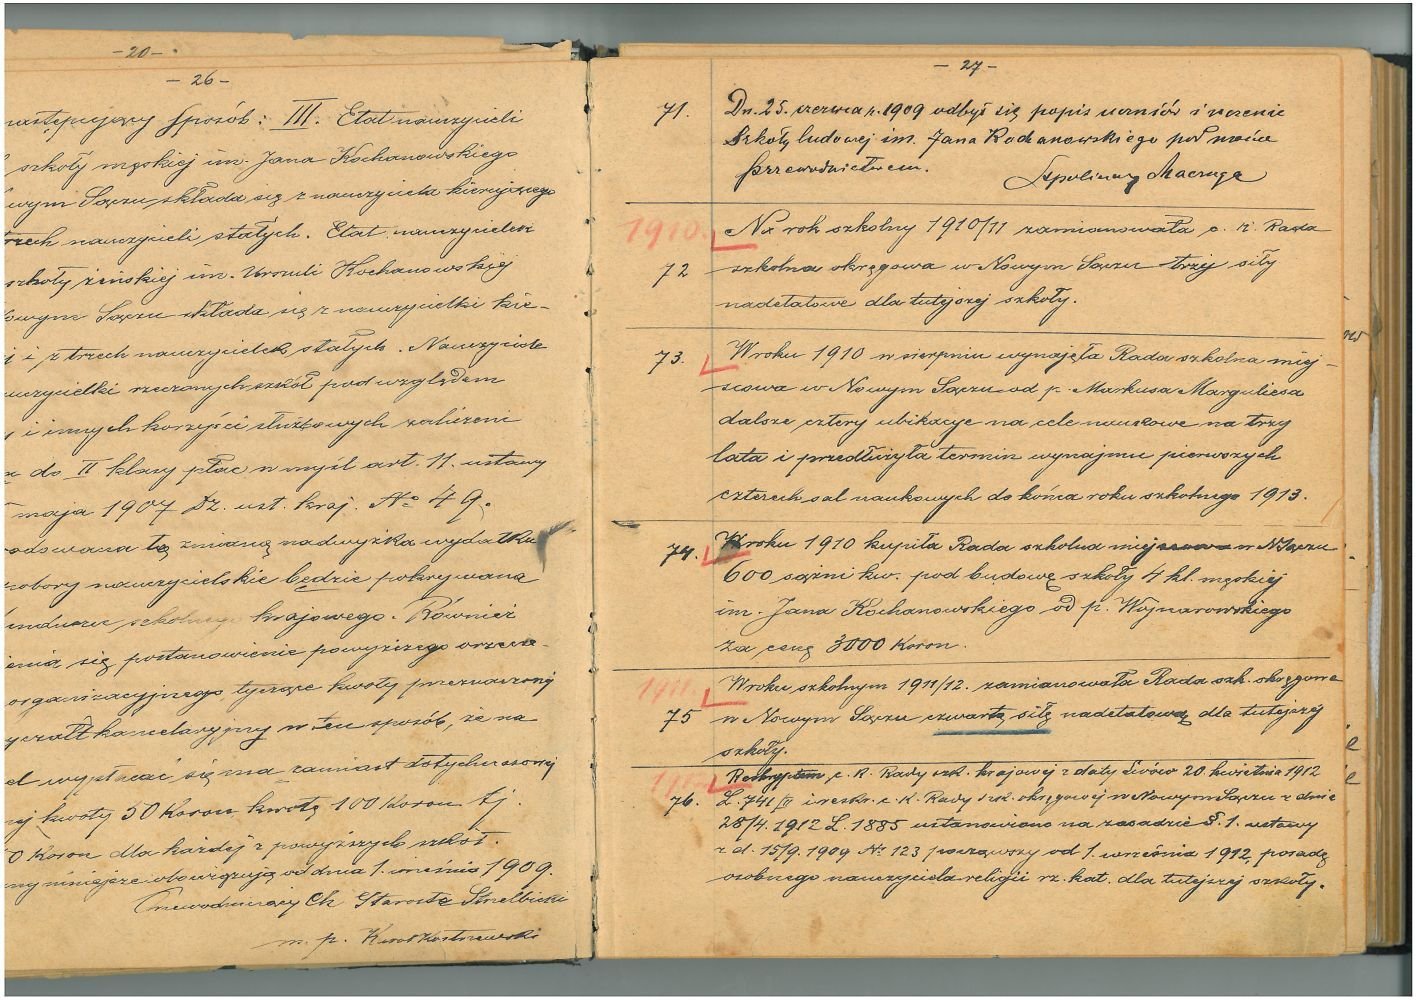 -20-
-26-
następujący sposób: III. Etat nauczycieli
szkoły męskiej im. Jana Kochanowskiego
wym Sączu składa się z nauczyciela kierującego
trzech nauczycieli stałych. Etat nauczycielek
szkoły żeńskiej im. Urszuli Kochanowskiej
owym Sączu składa się z nauczycielki kie-
j i z trzech nauczycielek stałych. Nauczyciele
uczycielki rzeczonych szkół pod względem
i innych korzyści służbowych zaliczeni
do II klasy płac w myśl art. 11. ustawy
maja 1907 Dz. ust. kraj. No 49.
odowana tą zmianą nadwyżka wydatku
pobory nauczycielskie będzie pokrywana
unduszu szkolnego krajowego. Również
enia się postanowienie powyższego orzecze-
organizacyjnego tyczące kwoty przeznaczonej
yczałt kancelaryjny w ten sposób, że na
el wypłacać się ma zamiast dotychczasowej
ej kwoty 50 Koron kwotę 100 Koron tj.
0 Koron dla każdej z powyższych szkół.
ny niniejsze obowiązują od dnia 1. września 1909.
Przewodniczący Ck Starosta
m. p.
-27-
71. Dn. 25. czerwca r. 1909 odbył się popis uczniów i uczenic
Szkoły ludowej im. Jana Kochanowskiego pod moim
przewodnictwem. Apolinary Maczuga
1910. Na rok szkolny 1910/11 zamianowała c. k. Rada
72 szkolna okręgowa w Nowym Sączu trzy siły
nadetatowe dla tutejszej szkoły.
73. W roku 1910 w sierpniu wynajęła Rada szkolna miej-
scowa w Nowym Sączu od p. Markusa Marguliesa
dalsze cztery ubikacye na cele naukowe na trzy
lata i przedłużyła termin wynajmu pierwszych
czterech sal naukowych do końca roku szkolnego 1913.
74. W roku 1910 kupiła Rada szkolna miejscowa w N. Sączu
600 sążni kw. pod budowę szkoły 4 kl. męskiej
im. Jana Kochanowskiego od p. Wojnarowskiego
za cenę 3000 Koron.
1911. W roku szkolnym 1911/12. zamianowała Rada szk. okręgowa
75 w Nowym Sączu czwartą siłę nadetatową dla tutejszej
szkoły.
Reskryptem c. k. Rady szk. krajowej z daty Lwów 20 kwietnia 1912
76. L. 741/IV i reskr. c. k. Rady szk. okręgowej w Nowym Sączu z dnia
28/4. 1912 L. 1885 ustanowiono na zasadzie §. 1. ustawy
z d. 15/9. 1909 Nr 123 począwszy od 1. września 1912 posadę
osobnego nauczyciela religii rz. kat. dla tutejszej szkoły.